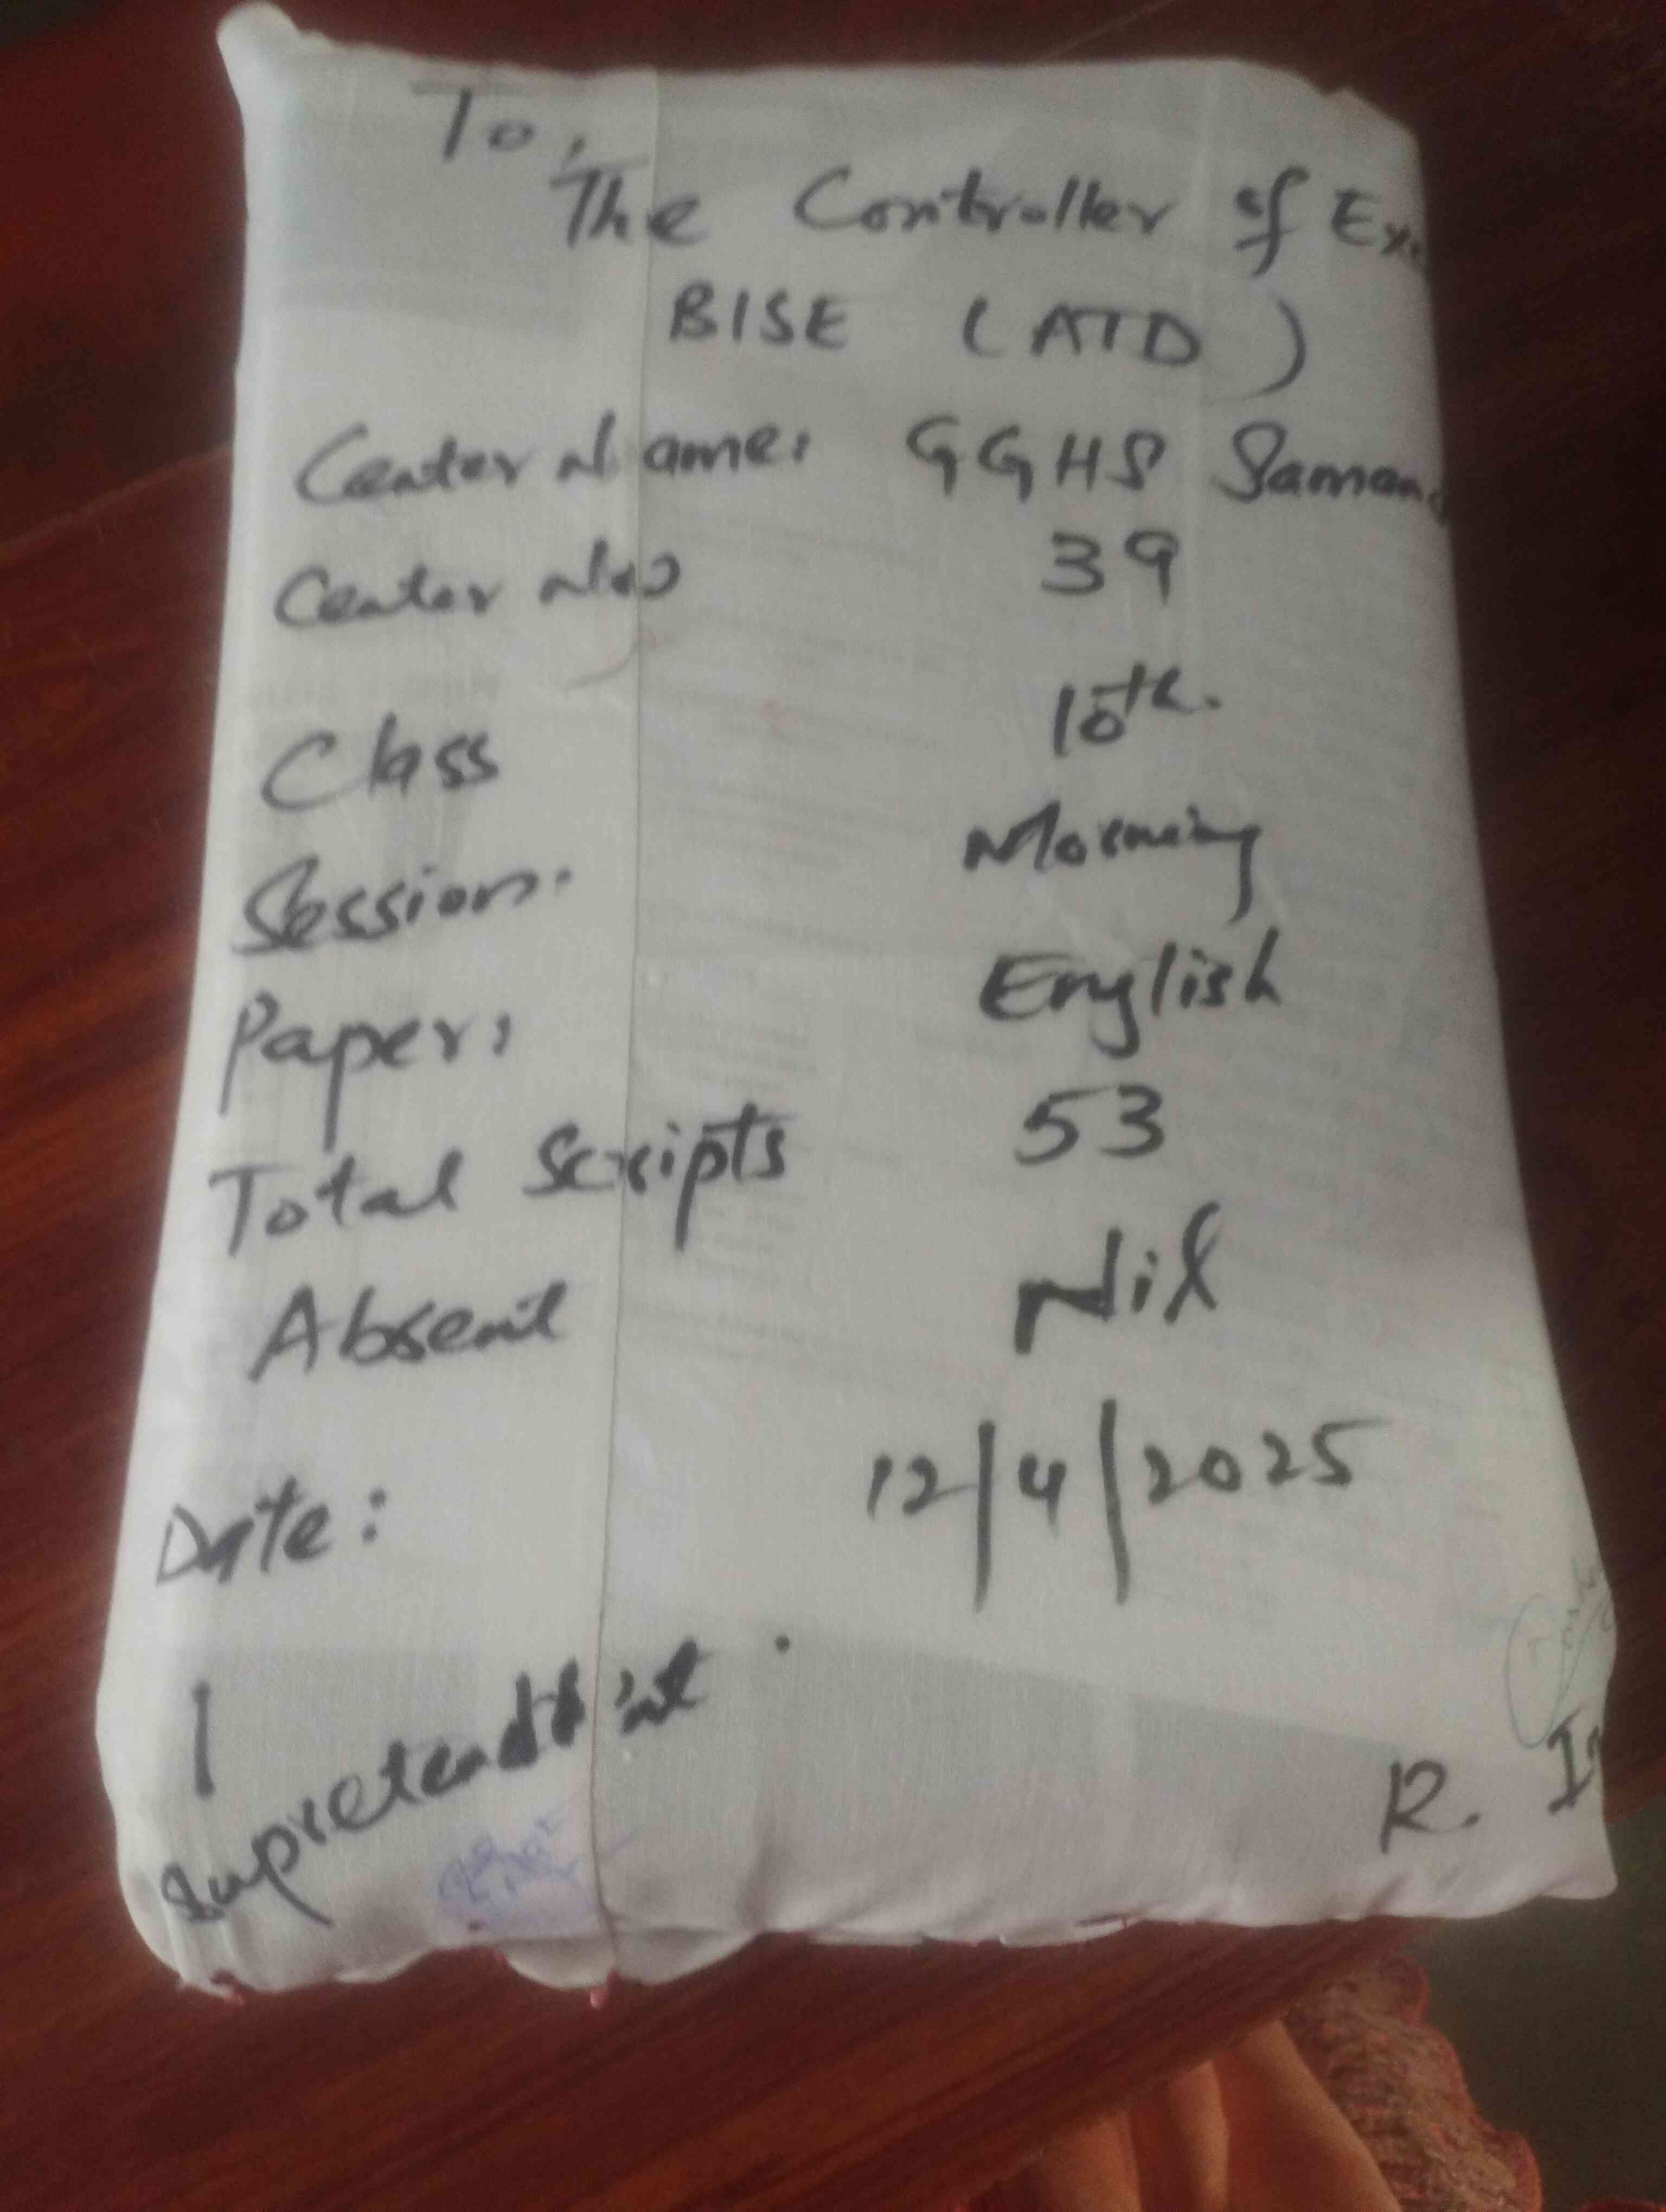 To,
The Controller of Ex
BISE (ATD)
Center Name: GGHS Saman
Center No 39
Class 10th.
Session. Morning
Paper: English
Total Scripts 53
Absent Nil
Date: 12/4/2025
Supretendent.
R. In